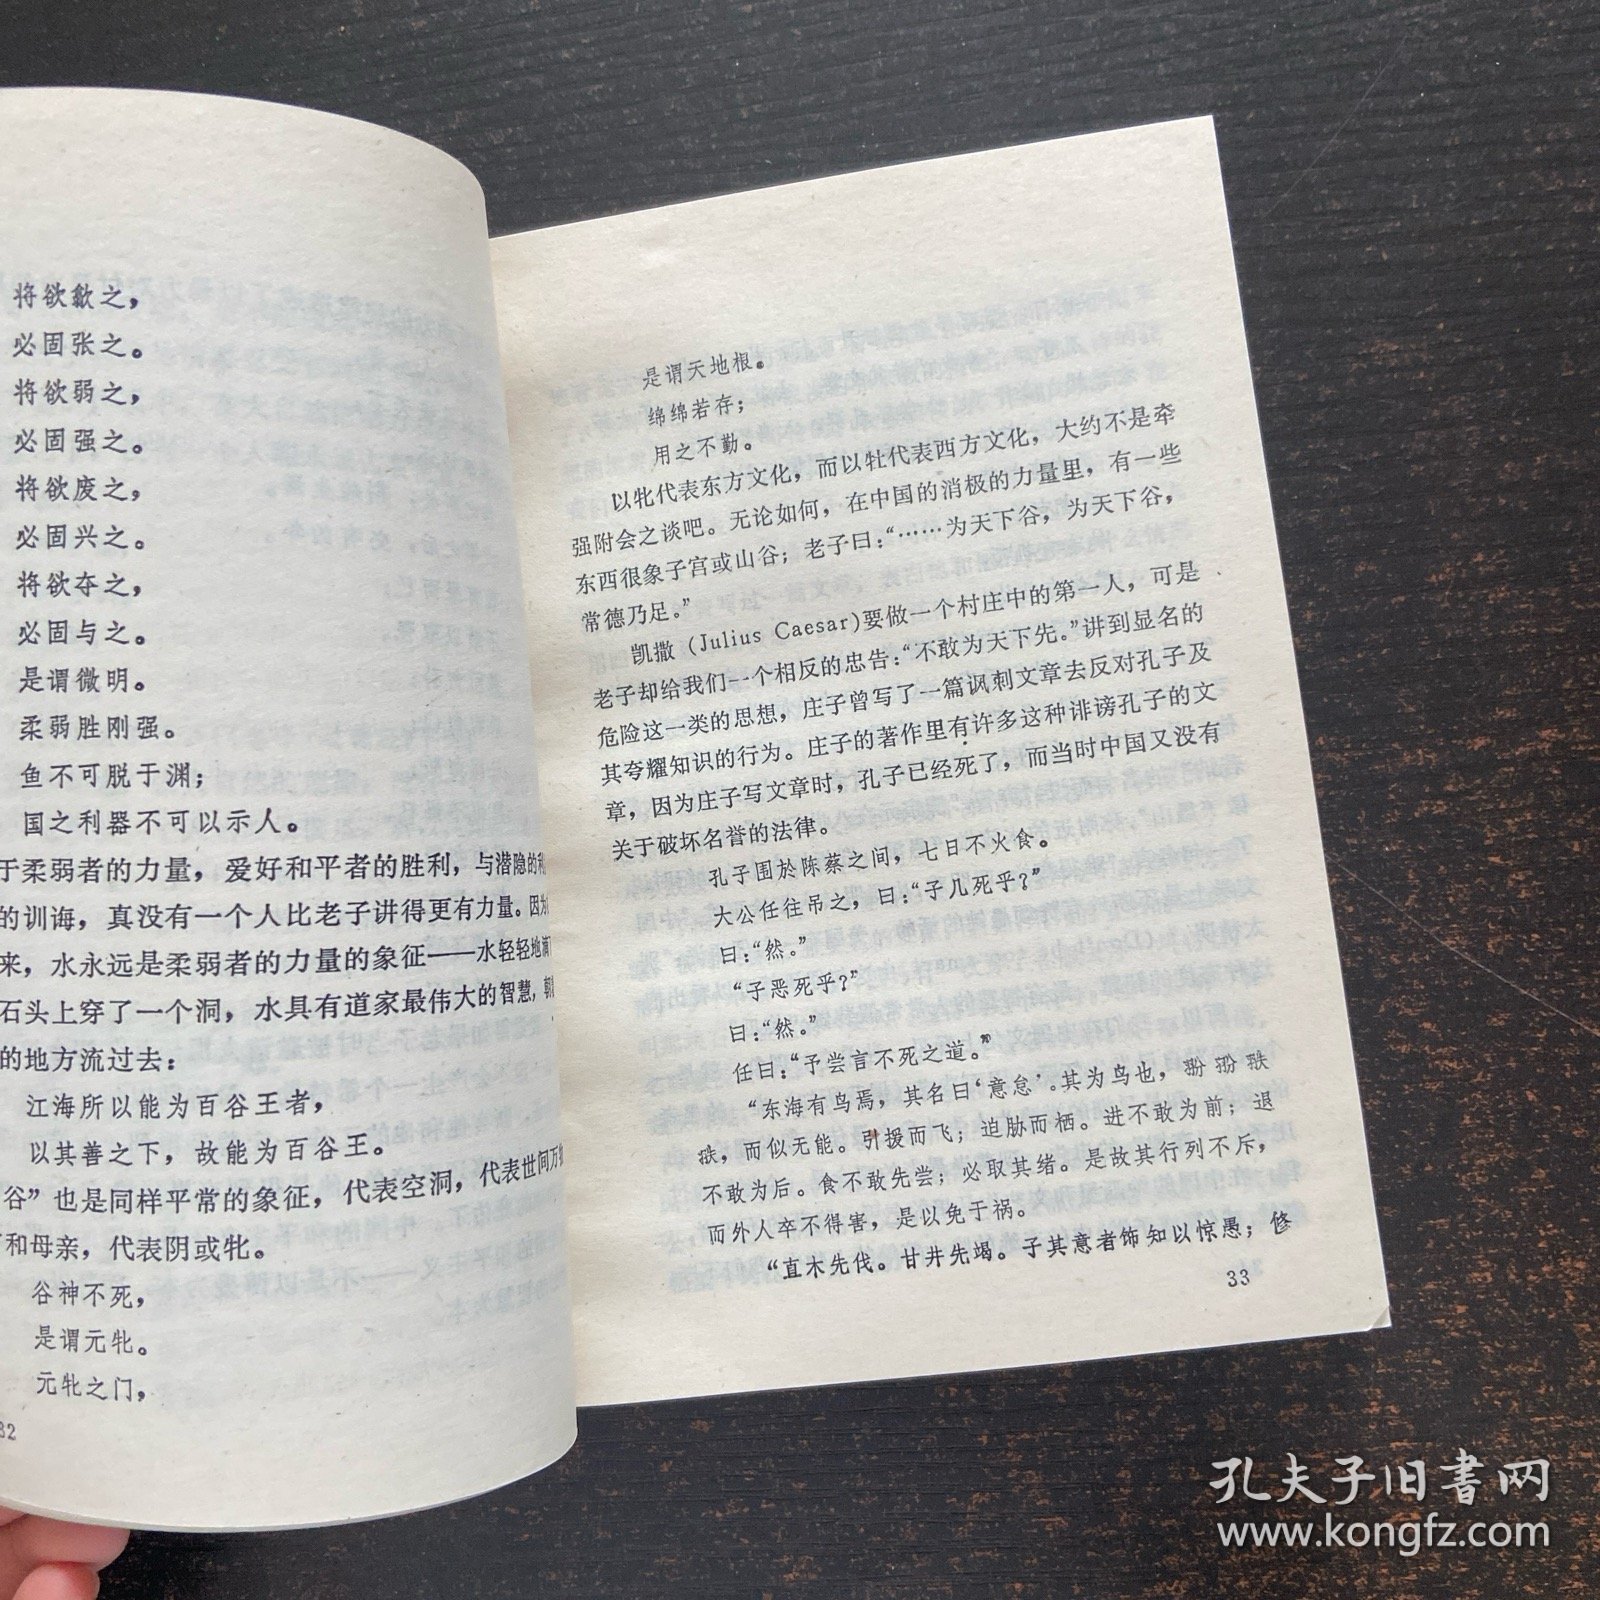 将欲歙之，
必固张之。
将欲弱之，
必固强之。
将欲废之，
必固兴之。
将欲夺之，
必固与之。
是谓微明。
柔弱胜刚强。
鱼不可脱于渊；
国之利器不可以示人。
于柔弱者的力量，爱好和平者的胜利，与潜隐的利
的训诲，真没有一个人比老子讲得更有力量。因为
来，水永远是柔弱者的力量的象征——水轻轻地滴
石头上穿了一个洞，水具有道家最伟大的智慧，
的地方流过去：
江海所以能为百谷王者，
以其善之下，故能为百谷王。
谷”也是同样平常的象征，代表空洞，代表世间万
和母亲，代表阴或牝。
谷神不死，
是谓元牝。
元牝之门，
32
是谓天地根。
绵绵若存；
用之不勤。
以牝代表东方文化，而以牡代表西方文化，大约不是牵
强附会之谈吧。无论如何，在中国的消极的力量里，有一些
东西很象子宫或山谷；老子曰：“……为天下谷，为天下谷，
常德乃足。”
凯撒（Julius Caesar)要做一个村庄中的第一人，可是
老子却给我们一个相反的忠告：“不敢为天下先。”讲到显名的
危险这一类的思想，庄子曾写了一篇讽刺文章去反对孔子及
其夸耀知识的行为。庄子的著作里有许多这种诽谤孔子的文
章，因为庄子写文章时，孔子已经死了，而当时中国又没有
关于破坏名誉的法律。
孔子围於陈蔡之间，七日不火食。
大公任往吊之，曰：“子几死乎？”
曰：“然。”
“子恶死乎？”
曰：“然。”
任曰：“予尝言不死之道。”
“东海有鸟焉，其名曰‘意怠’。其为鸟也，翂翂翐
翐，而似无能。引援而飞；迫胁而栖。进不敢为前；退
不敢为后。食不敢先尝；必取其绪。是故其行列不斥，
而外人卒不得害，是以免于祸。
“直木先伐。甘井先竭。子其意者饰知以惊愚；修
33
孔夫子旧书网
www.kongfz.com